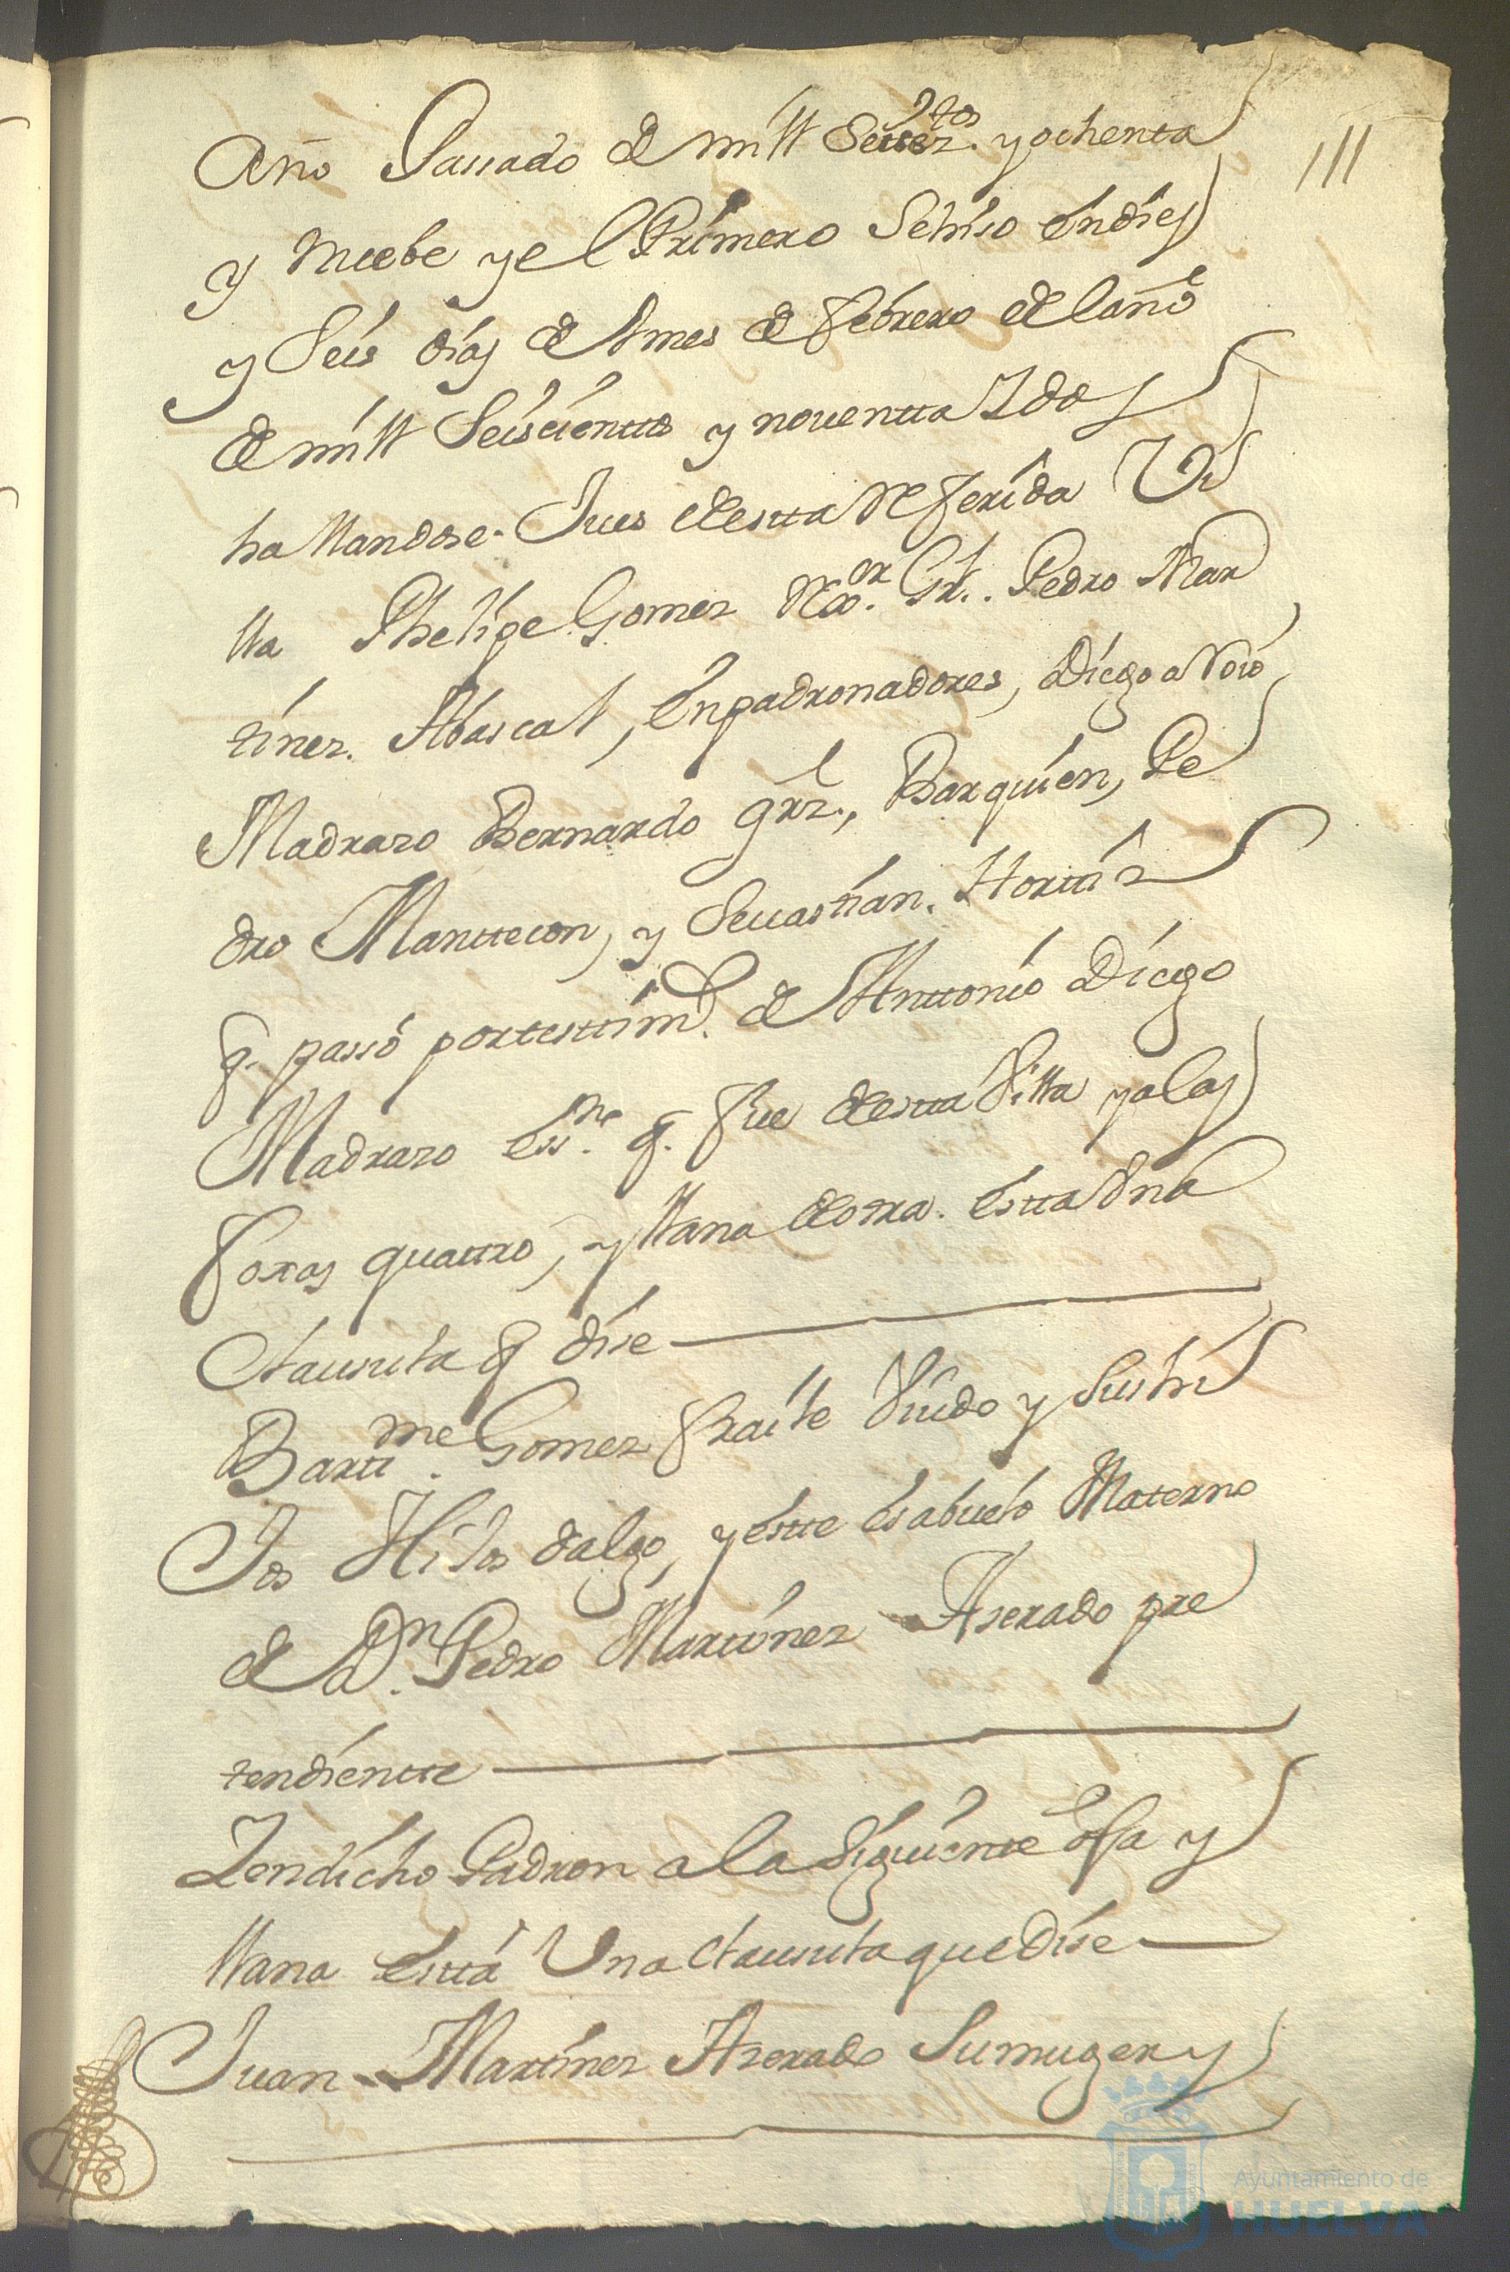 Año Passado de mill Seiscz.tos y ochenta
111
y nuebe y el Primero Sehiso en dies
y Seis dias del mes de febrero del año
de mill Seiscientos y nouentta Y dos
hallandose Jues desta Referida Vi
lla Phelipe Gomez Pedro Mar
tinez Abascal, Enpadronadores, Diego
Madrazo Bernardo grz., Barquien, Pe
dro Manttecon, y Seuastian. Horttiz
q. passó por testtim.o de Anttonio Diego
Madrazo ess.no q. fue desta Villa y a las
foxas quattro, y llana de otra. estta Vna
Clausula q dise
Bartt.me Gomez fraile Viudo y Sus hi
Jos Hijos dalgo, y estte es abuelo Materno
de Dn. Pedro Martinez Aserado pre
tendientte
Y en dicho Padron a la Siguiente ofa y
llana está Una Clausula que dise
Juan Martinez Azerado Su muger y
Ayuntamiento de
HUELVA